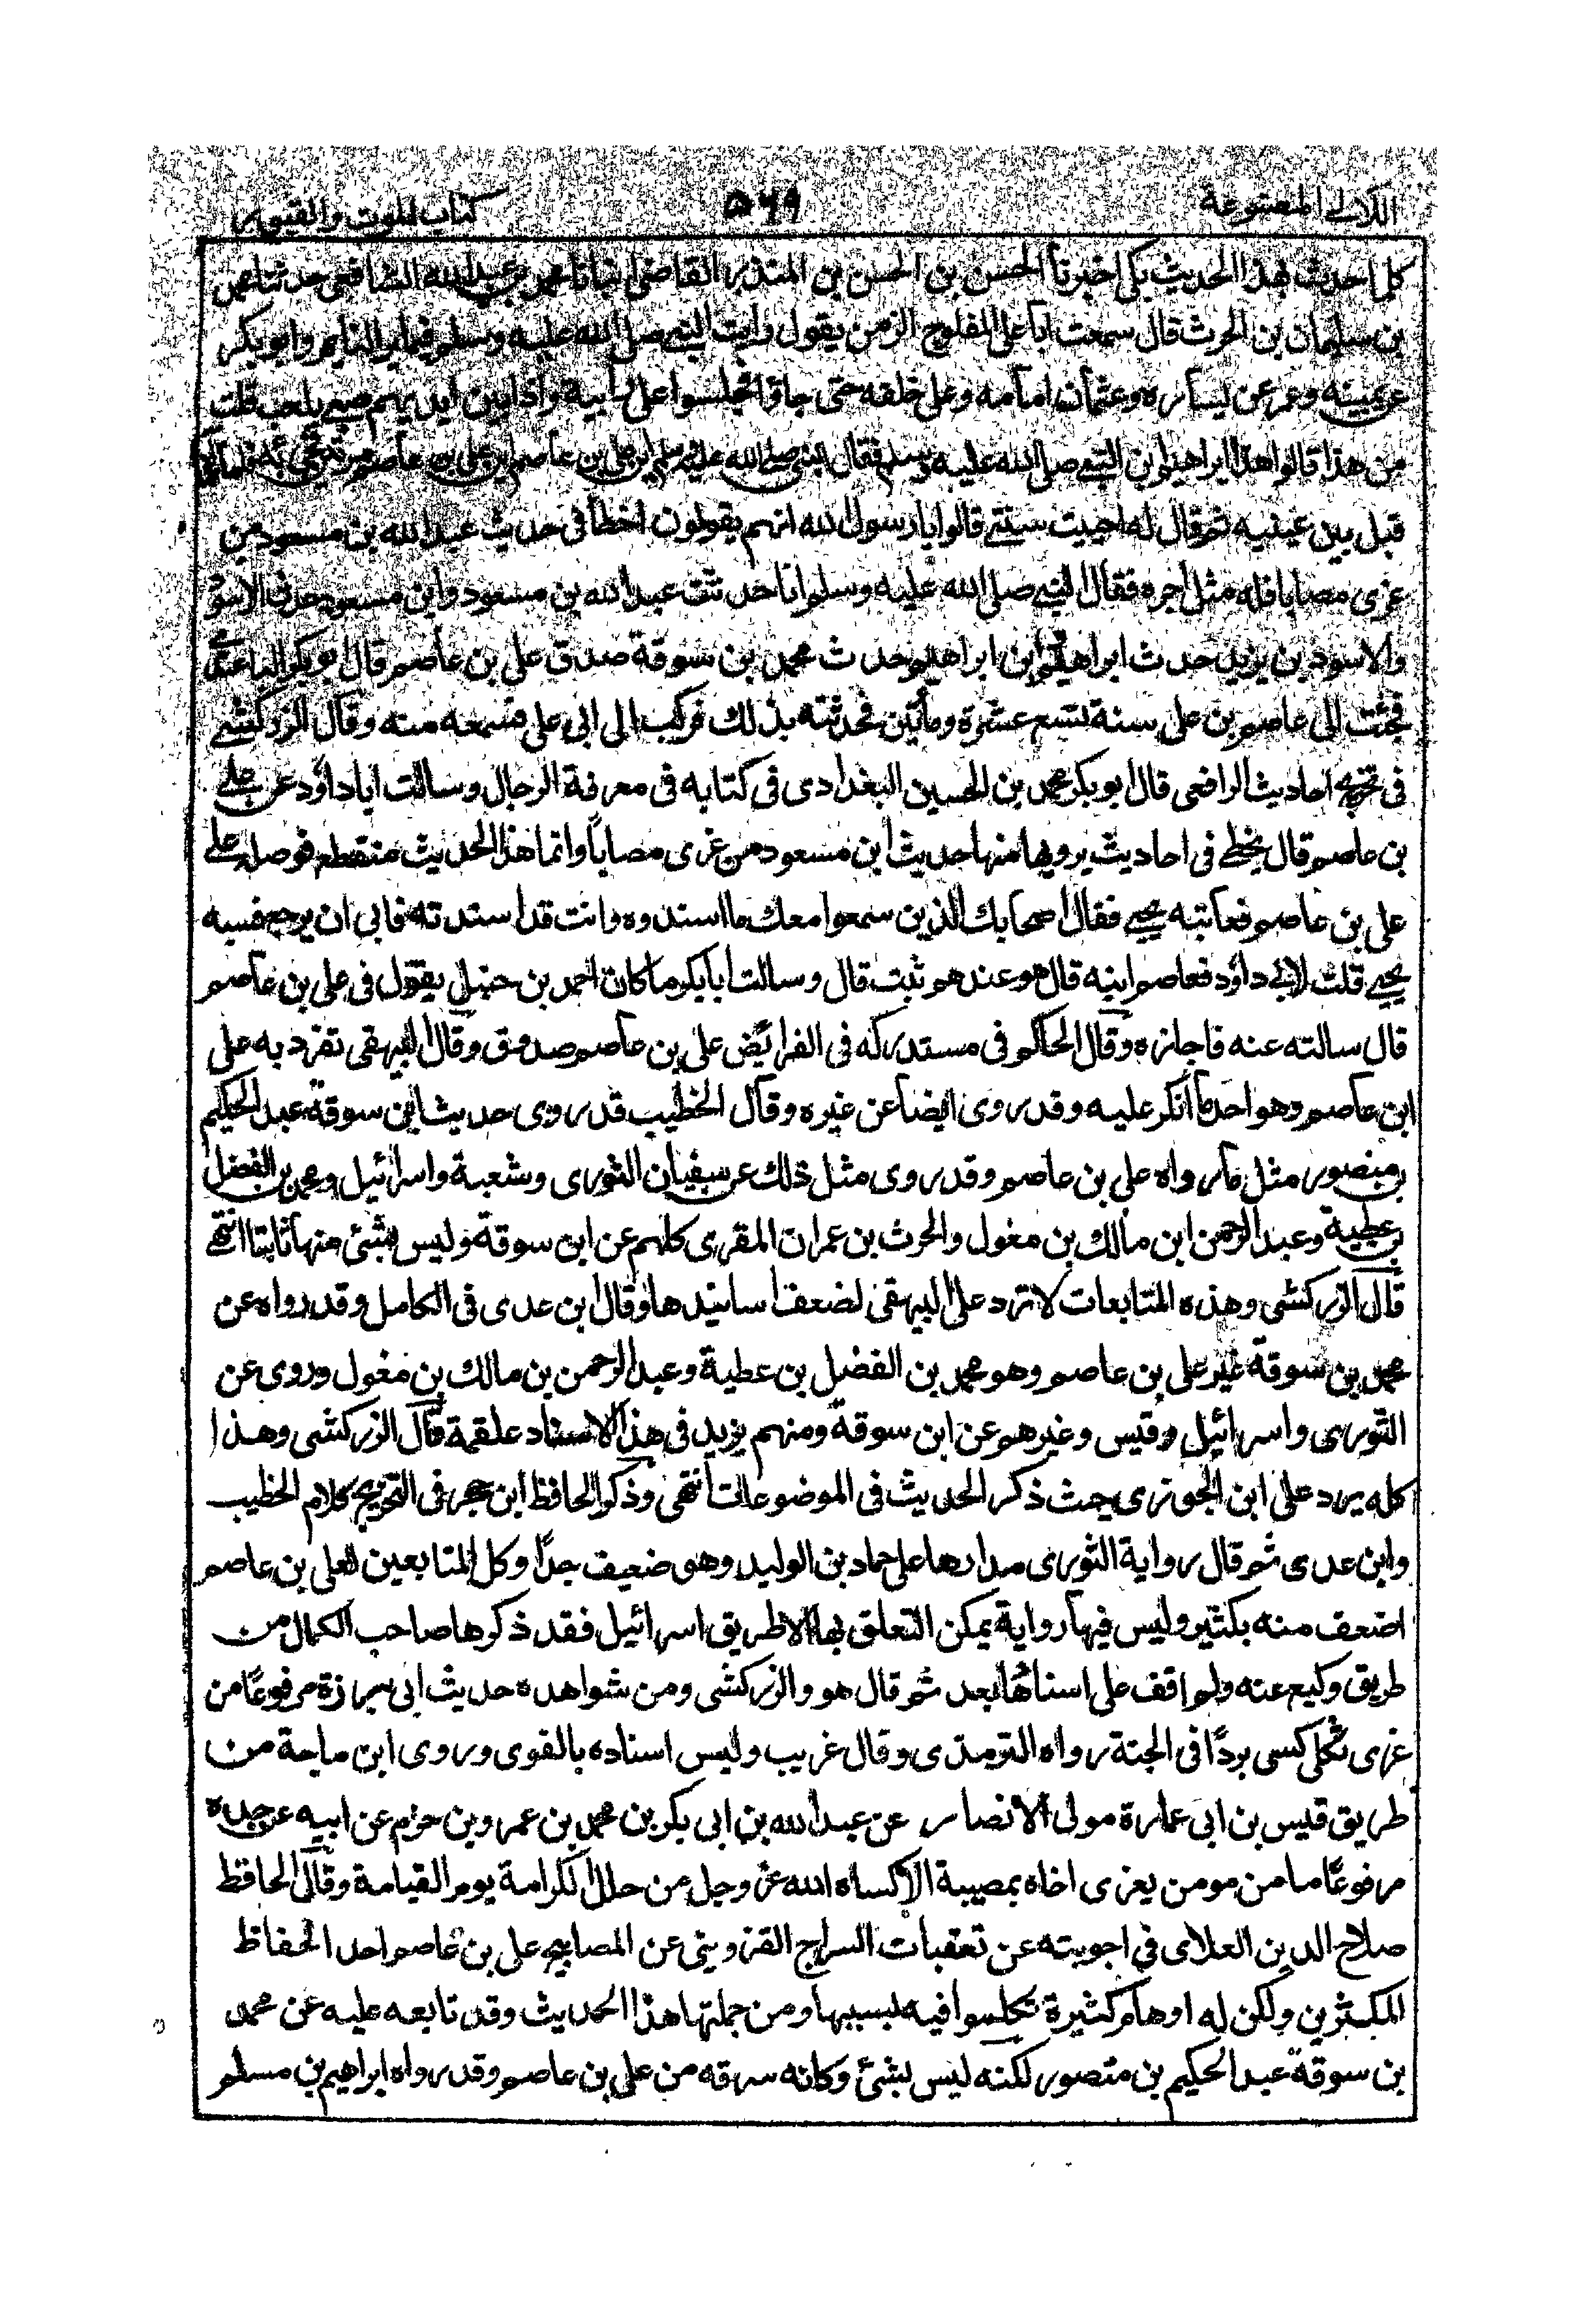 اللآلى المصنوعة ٥٦٩ كتاب الموت والقبور
كلما حدث بهذا الحديث بكى اخبرنا الحسن بن الحسن بن المنذر القاضى انبانا عمر وعبد الله الشافعى حدثنا عمر
بن سليمان بن الحرث قال سمعت ابا على المفلوج الزمن يقول رايت النبى صلى الله عليه وسلم فيما يرى النايم وابو بكر
عن يمينه وعمر عن يساره وعثمان امامه وعلى خلفه حتى جاؤا فجلسوا على رابية واذا بين ايديهم صبى يلعب قلت
من هذا قالوا هذا ابراهيم بن النبى صلى الله عليه وسلم فقال النبى صلى الله عليه وسلم اين على بن عاصم اين على بن عاصم مرتين فجئ به فلما
قبل بين عينيه ثم قال له احييت سنتى قالوا يا رسول الله انهم يقولون اخطأ فى حديث عبد الله بن مسعود من
عزى مصابا فله مثل اجره فقال النبى صلى الله عليه وسلم انا حدثت عبد الله بن مسعود وابن مسعود حدث الاسود
والاسود بن يزيد حدث ابراهيم وابن ابراهيم حدث محمد بن سوقة صدق على بن عاصم قال ابو بكر الباغندى
فجئت الى عاصم بن على سنة تسع عشرة ومأتين فحدثته بذلك فركب الى ابى على فسمعه منه وقال الزركشى
فى تخريج احاديث الرافعى قال ابو بكر محمد بن الحسين البغدادى فى كتابه فى معرفة الرجال وسالت ابا داؤد عن على
بن عاصم قال يخطى فى احاديث يرويها منها حديث ابن مسعود من عزى مصاباً وانما هذا الحديث منقطع فوصله على
على بن عاصم فعاتبه يحيى فقال اصحابك الذين سمعوا معك ما اسندوه وانت قد اسندته فابى ان يرجع فسبه
يحيى قلت لابى داؤد فعاصم ابنه قال هو عندهم ثبت قال وسالت ابا بكر ما كان احمد بن حنبل يقول فى على بن عاصم
قال سالته عنه فاجازه وقال الحاكم فى مستدركه فى الفرائض على بن عاصم صدوق وقال البيهقى تفرد به على
ابن عاصم وهو احد ما انكر عليه وقد روى ايضا عن غيره وقال الخطيب قد روى حديث ابن سوقة عبد الحكيم
بن منصور مثل ما رواه على بن عاصم وقد روى مثل ذلك عن سفيان الثورى وشعبة واسرائيل ومحمد بن الفضل
بن عطية وعبد الرحمن ابن مالك بن مغول والحرث بن عمران المقرى كلهم عن ابن سوقة وليس بشئ منها ثابتا انتهى
قال الزركشى وهذه المتابعات لا ترد على البيهقى لضعف اسانيدها وقال ابن عدى فى الكامل وقد رواه عن
محمد بن سوقة غير على بن عاصم وهو محمد بن الفضل بن عطية وعبد الرحمن بن مالك بن مغول وروى عن
الثورى واسرائيل وقيس وغيرهم عن ابن سوقة ومنهم يزيد فى هذا الاسناد علقمة قال الزركشى وهذا
كله يرد على ابن الجوزى حيث ذكر الحديث فى الموضوعات انتهى وذكر الحافظ ابن حجر فى التخريج كلام الخطيب
وابن عدى ثم قال رواية الثورى مدارها على حماد بن الوليد وهو ضعيف جدًا وكل المتابعين لعلى بن عاصم
اضعف منه بكثير وليس فيها رواية يمكن التعلق بها الا طريق اسرائيل فقد ذكرها صاحب الكمال من
طريق وكيع عنه ولم اقف على اسنادها بعد ثم قال هو والزركشى ومن شواهده حديث ابى برزة مرفوعًا من
عزى ثكلى كسى بردًا فى الجنة رواه الترمذى وقال غريب وليس اسناده بالقوى وروى ابن ماجة من
طريق قيس بن ابى عمارة مولى الانصار عن عبد الله بن ابى بكر بن محمد بن عمرو بن حزم عن ابيه عن جده
مرفوعًا ما من مومن يعزى اخاه بمصيبة الا كساه الله عز وجل من حلل الكرامة يوم القيامة وقال الحافظ
صلاح الدين العلائى فى اجوبته عن تعقبات السراج القزوينى عن المصابيح على بن عاصم احد الحفاظ
المكثرين ولكن له اوهام كثيرة تكلموا فيه بسببها ومن جملتها هذا الحديث وقد تابعه عليه عن محمد
بن سوقة عبد الحكيم بن منصور لكنه ليس بشئ وكانه سرقه من على بن عاصم وقد رواه ابراهيم بن مسلم